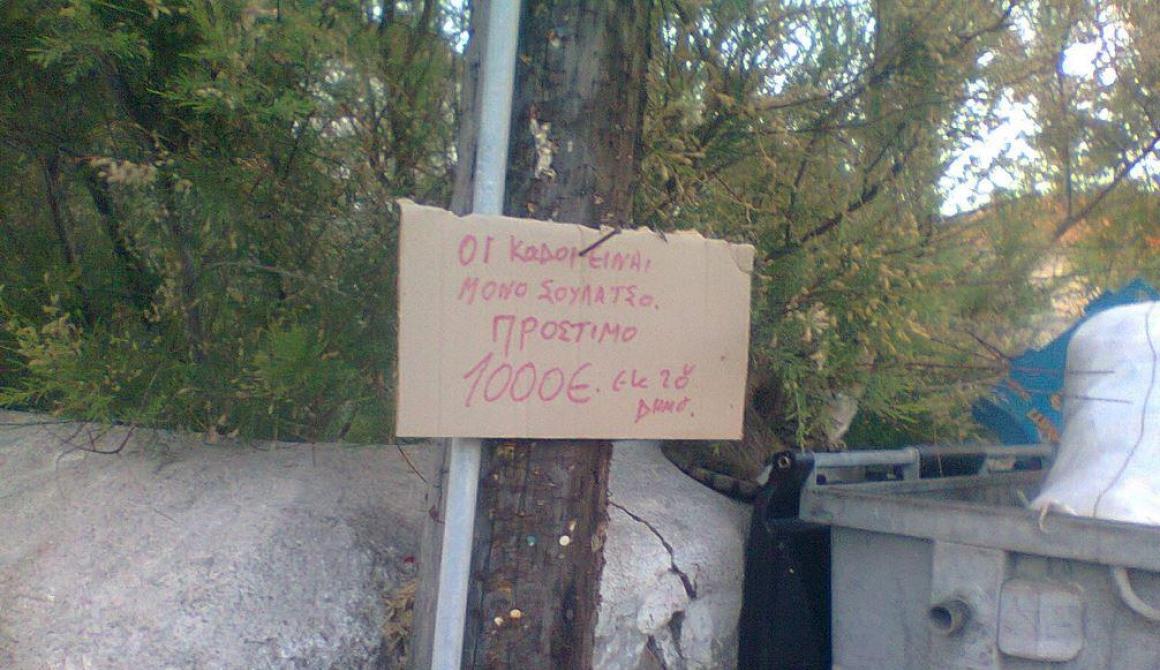 ΟΙ ΚΑΔΟΙ ΕΙΝΑΙ
ΜΟΝΟ ΣΟΥΛΑΤΣΟ.
ΠΡΟΣΤΙΜΟ
1000€. εκ του
ΔΗΜΟ.